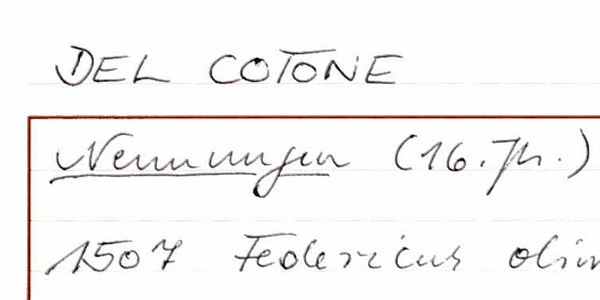 DEL COTONE
Nennungen (16. Jh.)
1507 Federicus olim